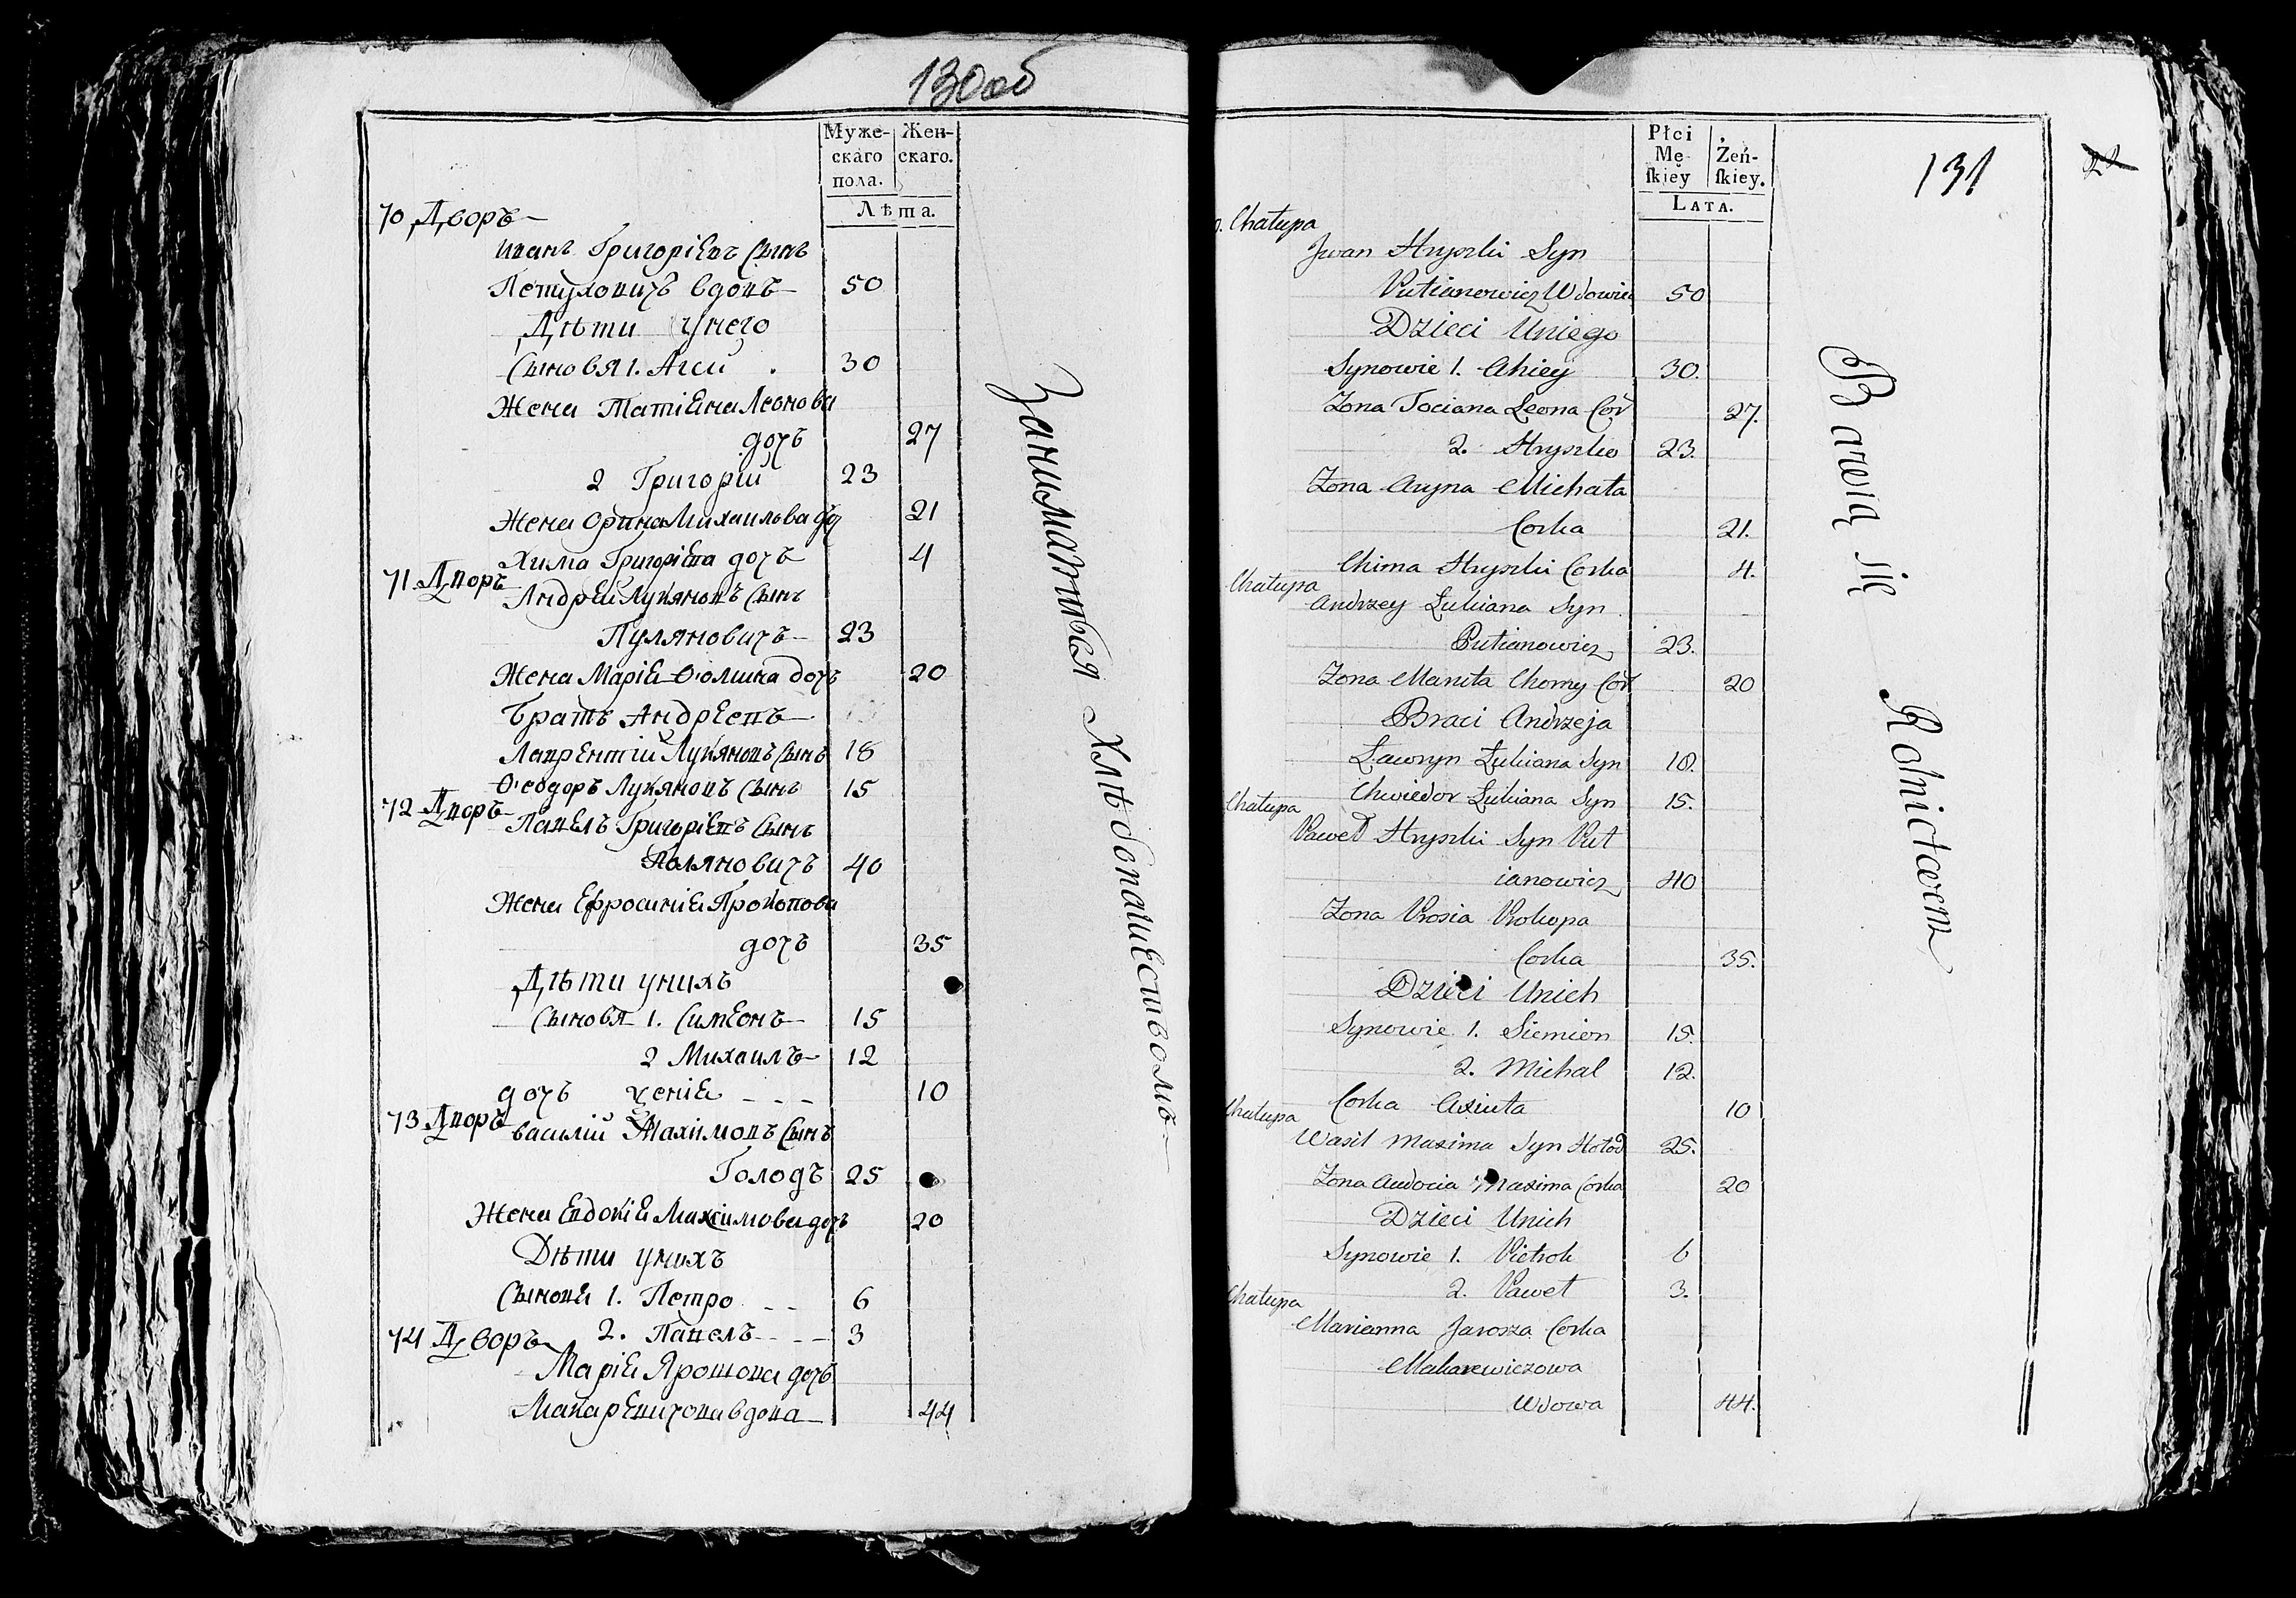 130об
Муже-
скаго
пола.
Жен-
скаго.
Лѣта.
70 Дворъ
Иванъ Григоріевъ Сынъ
вдовъ 50
Дѣти Унего
Сыновя 1. Агей 30
Жена Татіяна Леонова
дочъ 27
2 Григорій 23
Жена Орина Михаилова до 21
Хима Григоріева дочъ 4
71 Дворъ
Андрей Лукяновъ Сынъ
Пуляновичъ 23
Жена Марія Ѳомина дочъ 20
Братъ Андреевъ
Лаврентій Лукяновъ Сынъ 18
Ѳеодоръ Лукяновъ Сынъ 15
72 Дворъ
Павелъ Григоріевъ Сынъ
Поляновичъ 40
Жена Ефросинія Прокопова
дочъ 35
Дѣти унихъ
Сыновя 1. Симеонъ 15
2 Михаилъ 12
дочъ 10
73 Дворъ
Василій Махимовъ Сынъ
Голодъ 25
Жена Евдокія Максимова дочъ 20
Дѣти унихъ
Сыновя 1. Петро 6
2. Павелъ 3
74 Дворъ
Марія Ярошова дочъ
Макаревичова вдова 44
Занимаются Хлѣбопашествомъ
Płci
Mę-
ſkiey
Żeń-
ſkiey.
LATA.
131
Chałupa
Jwan Hryszki Syn
Putianowicz Wdowiec 50
Dzieci Uniego
Synowie 1. Ahiey 30.
Zona Tociana Leona Cor 27.
2. Hryszko 23.
Zona Aryna Michała
Corka 21.
Chima Hryszki Corka 4.
Chałupa
Andrzey Łukiana Syn
Putianowicz 23.
Zona Maruta Chomy Cor 20
Braci Andrzeja
Ławryn Łukiana Syn 18.
Chwiedor Łukiana Syn 15.
Chałupa
Paweł Hryszki Syn Put
ianowicz 40
Zona Prosia Prokopa
Corka 35.
Dzieci Unich
Synowie 1. Siemion 15.
2. Michal 12.
Corka Axiuta 10
Chałupa
Wasil Maxima Syn Hołod 25.
Zona Audocia Maxima Corka 20
Dzieci Unich
Synowie 1. Pietrok 6
2. Paweł 3.
Chałupa
Marianna Jarosza Corka
Makarewiczowa
Wdowa 44.
Bawią się Rolnictwem